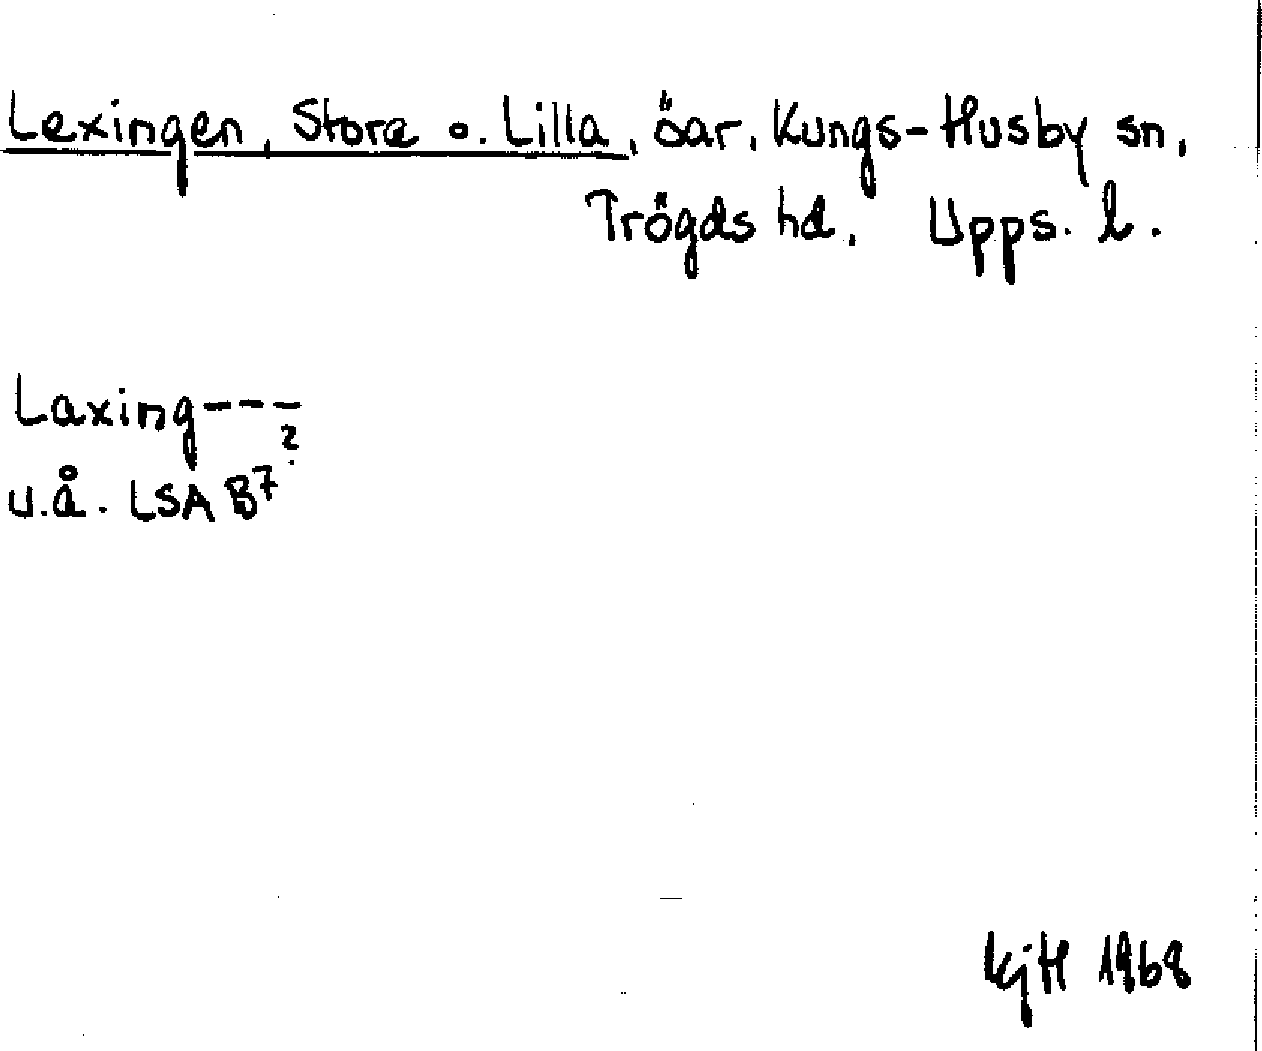 Lexingen, Store o. Lilla, öar, Kungs-Husby sn,
Trögds hd, Upps. l.
Laxing---
?
u.å. LSA B7
kjH 1968